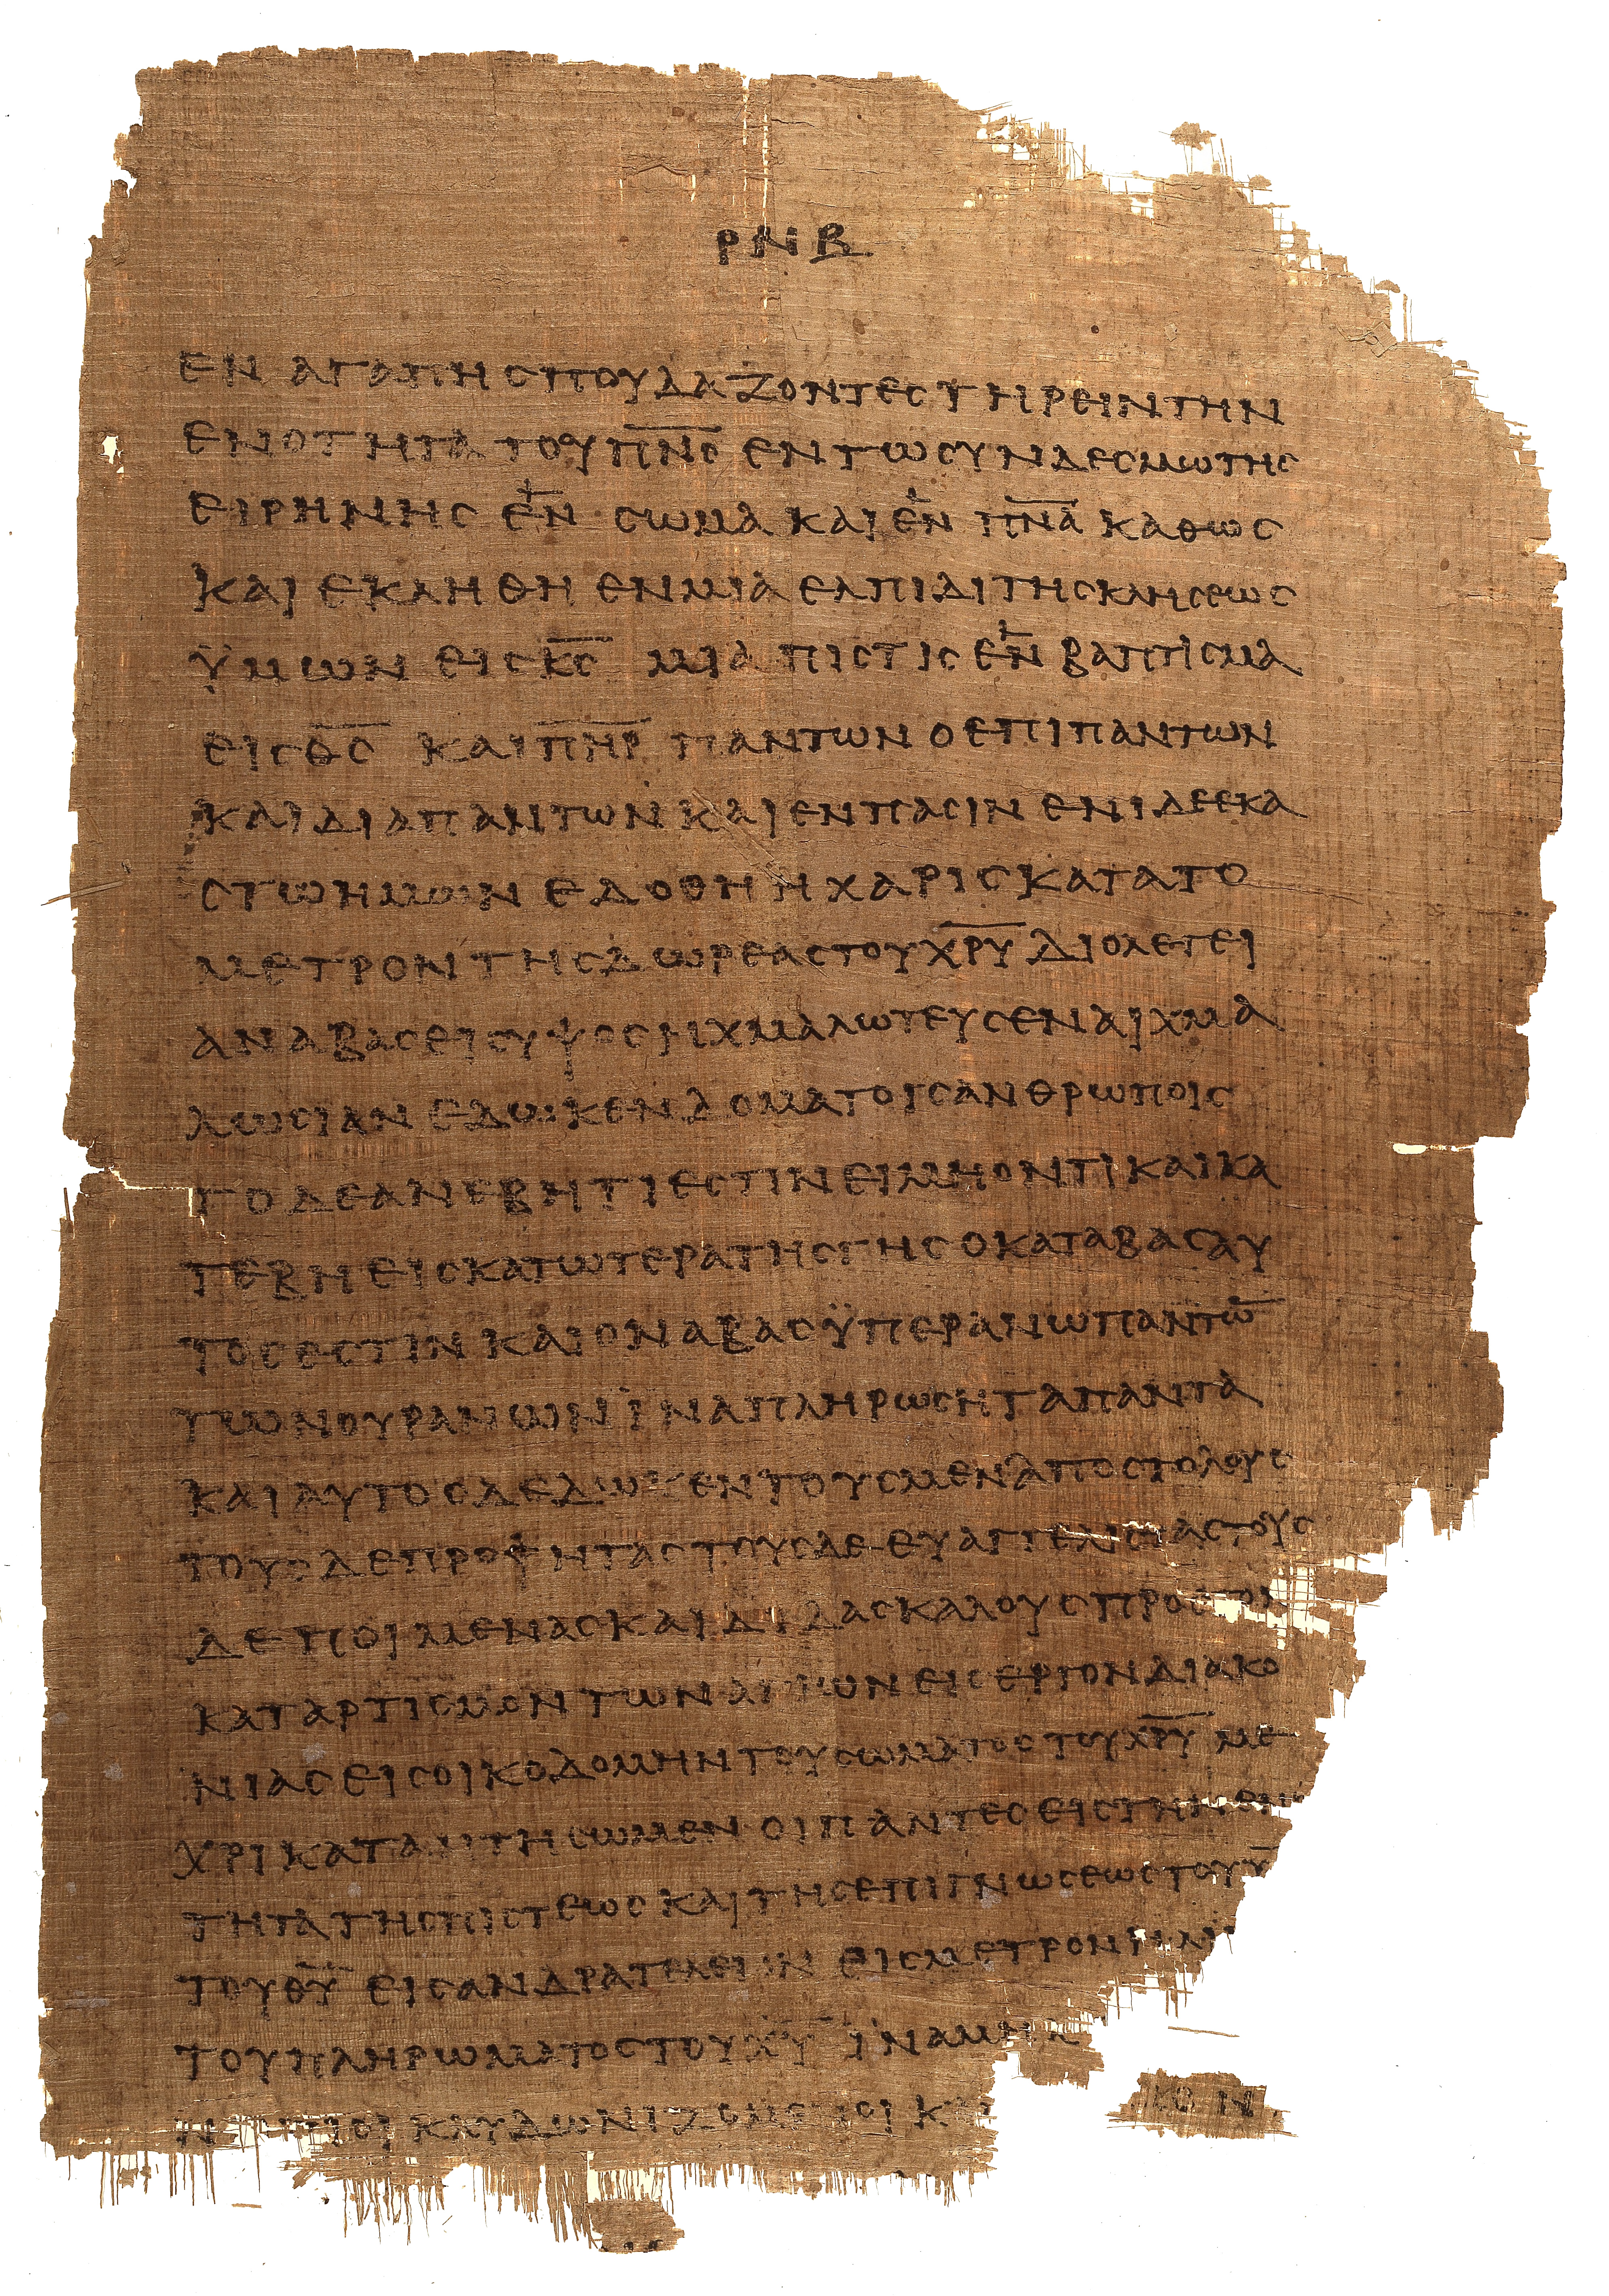 ΡΝΒ
ΕΝ ΑΓΑΠΗ ΣΠΟΥΔΑΖΟΝΤΕΣ ΤΗΡΕΙΝ ΤΗΝ
ΕΝΟΤΗΤΑ ΤΟΥ Π̅Ν̅Σ̅ ΕΝ ΤΩ ΣΥΝΔΕΣΜΩ ΤΗΣ
ΕΙΡΗΝΗΣ ΕΝ ΣΩΜΑ ΚΑΙ ΕΝ Π̅Ν̅Α̅ ΚΑΘΩΣ
ΚΑΙ ΕΚΛΗΘΗ ΕΝ ΜΙΑ ΕΛΠΙΔΙ ΤΗΣ ΚΛΗΣΕΩΣ
ΫΜΩΝ ΕΙΣ Κ̅Σ̅ ΜΙΑ ΠΙΣΤΙΣ ΕΝ ΒΑΠΤΙΣΜΑ
ΕΙΣ Θ̅Σ̅ ΚΑΙ Π̅Η̅Ρ̅ ΠΑΝΤΩΝ Ο ΕΠΙ ΠΑΝΤΩΝ
ΚΑΙ ΔΙΑ ΠΑΝΤΩΝ ΚΑΙ ΕΝ ΠΑΣΙΝ ΕΝΙ ΔΕ ΕΚΑ
ΣΤΩ ΗΜΩΝ ΕΔΟΘΗ Η ΧΑΡΙΣ ΚΑΤΑ ΤΟ
ΜΕΤΡΟΝ ΤΗΣ ΔΩΡΕΑΣ ΤΟΥ Χ̅Ρ̅Υ̅ ΔΙΟ ΛΕΓΕΙ
ΑΝΑΒΑΣ ΕΙΣ ΥΨΟΣ ΗΧΜΑΛΩΤΕΥΣΕΝ ΑΙΧΜΑ
ΛΩΣΙΑΝ ΕΔΩΚΕΝ ΔΟΜΑ ΤΟΙΣ ΑΝΘΡΩΠΟΙΣ
ΤΟ ΔΕ ΑΝΕΒΗ ΤΙ ΕΣΤΙΝ ΕΙ ΜΗ ΟΝΤΙ ΚΑΙ ΚΑ
ΤΕΒΗ ΕΙΣ ΚΑΤΩΤΕΡΑ ΤΗΣ ΓΗΣ Ο ΚΑΤΑΒΑΣ ΑΥ
ΤΟΣ ΕΣΤΙΝ ΚΑΙ Ο ΝΑΒΑΣ ΫΠΕΡΑΝΩ ΠΑΝΤΩ̅
ΤΩΝ ΟΥΡΑΝΩΝ ΪΝΑ ΠΛΗΡΩΣΗ ΤΑ ΠΑΝΤΑ
ΚΑΙ ΑΥΤΟΣ ΔΕΔΩΚΕΝ ΤΟΥΣ ΜΕΝ ΑΠΟΣΤΟΛΟΥΣ
ΤΟΥΣ ΔΕ ΠΡΟΦΗΤΑΣ ΤΟΥΣ ΔΕ ΕΥΑΓΓΕΛΙΣΤΑΣ ΤΟΥΣ
ΔΕ ΠΟΙΜΕΝΑΣ ΚΑΙ ΔΙΔΑΣΚΑΛΟΥΣ ΠΡΟΣ ΤΟΝ
ΚΑΤΑΡΤΙΣΜΟΝ ΤΩΝ ΑΓΙΩΝ ΕΙΣ ΕΡΓΟΝ ΔΙΑΚΟ
ΝΙΑΣ ΕΙΣ ΟΙΚΟΔΟΜΗΝ ΤΟΥ ΣΩΜΑΤΟΣ ΤΟΥ Χ̅Ρ̅Υ̅ ΜΕ
ΧΡΙ ΚΑΤΑΝΤΗΣΩΜΕΝ ΟΙ ΠΑΝΤΕΣ ΕΙΣ ΤΗΝ ΕΝ
ΤΗΤΑ ΤΗΣ ΠΙΣΤΕΩΣ ΚΑΙ ΤΗΣ ΕΠΙΓΝΩΣΕΩΣ ΤΟΥ Υ
ΤΟΥ Θ̅Υ̅ ΕΙΣ ΑΝΔΡΑ ΤΕΛΕΙΟΝ ΕΙΣ ΜΕΤΡΟΝ ΗΛΙ
ΤΟΥ ΠΛΗΡΩΜΑΤΟΣ ΤΟΥ Χ̅Υ̅ ΪΝΑ ΜΗ
ΝΗΠΙΟΙ ΚΛΥΔΩΝΙΖΟΜΕΝΟΙ Κ